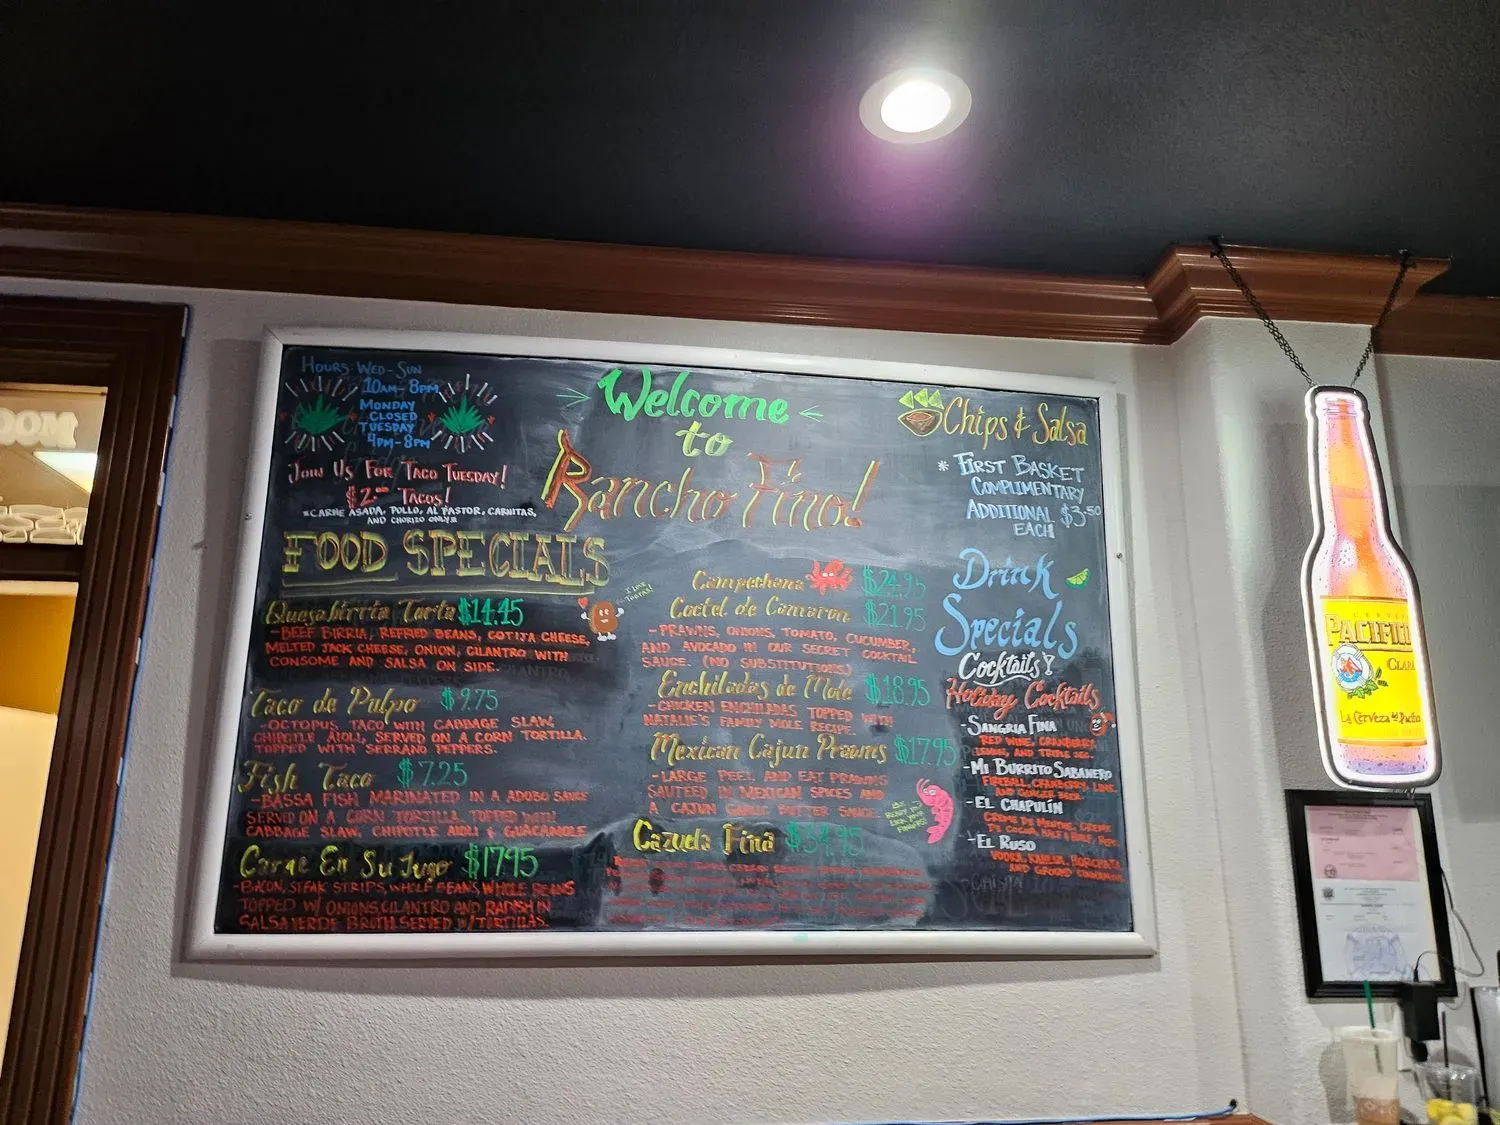 HOURS: WED-SUN
10AM-8PM
MONDAY
CLOSED
TUESDAY
4PM-8PM
JOIN US FOR TACO TUESDAY!
$2.00 TACOS!
*CARNE ASADA, POLLO, AL PASTOR, CARNITAS,
AND CHORIZO ONLY*
FOOD SPECIALS
Quesabirria Torta $14.45
-BEEF BIRRIA, REFRIED BEANS, COTIJA CHEESE,
MELTED JACK CHEESE, ONION, CILANTRO WITH
CONSOME AND SALSA ON SIDE.
Taco de Pulpo $9.75
-OCTOPUS TACO WITH CABBAGE SLAW,
CHIPOTLE AIOLI, SERVED ON A CORN TORTILLA.
TOPPED WITH SERRANO PEPPERS.
Fish Taco $7.25
-BASSA FISH MARINATED IN A ADOBO SAUCE
SERVED ON A CORN TORTILLA, TOPPED WITH
CABBAGE SLAW, CHIPOTLE AIOLI & GUACAMOLE
Carne En Su Jugo $17.95
-BACON, STEAK STRIPS, WHOLE BEANS, WHOLE BEANS
TOPPED W/ ONIONS, CILANTRO AND RADISH IN
SALSA VERDE BROTH. SERVED W/ TORTILLAS.
Welcome
to
Rancho Fino!
Campechana $24.95
Coctel de Camaron $21.95
-PRAWNS, ONIONS, TOMATO, CUCUMBER,
AND AVOCADO IN OUR SECRET COCKTAIL
SAUCE. (NO SUBSTITUTIONS)
Enchiladas de Mole $18.95
-CHICKEN ENCHILADAS TOPPED WITH
NATALIE'S FAMILY MOLE RECIPE.
Mexican Cajun Prawns $17.95
-LARGE PEEL AND EAT PRAWNS
SAUTEED IN MEXICAN SPICES AND
A CAJUN GARLIC BUTTER SAUCE.
Cazuela Fina $34.95
Chips & Salsa
* FIRST BASKET
COMPLIMENTARY
ADDITIONAL $3.50
EACH
Drink
Specials
Cocktails!
Holiday Cocktails
-SANGRIA FINA
RED WINE, CRANBERRY,
AND TRIPLE SEC.
-MI BURRITO SABANERO
FIREBALL, CRANBERRY, LIME,
AND GINGER BEER
-EL CHAPULÍN
CREME DE MENTHE, CREME
DE COCOA,
-EL RUSO
VODKA, KAHLUA, HORCHATA
AND GROUND CINNAMON
PACIFICO
CLARA
La Cerveza del Pacifico